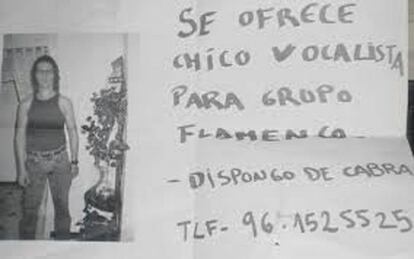 SE OFRECE
CHICO VOCALISTA
PARA GRUPO
FLAMENCO_
- DISPONGO DE CABRA
TLF- 96.1525525